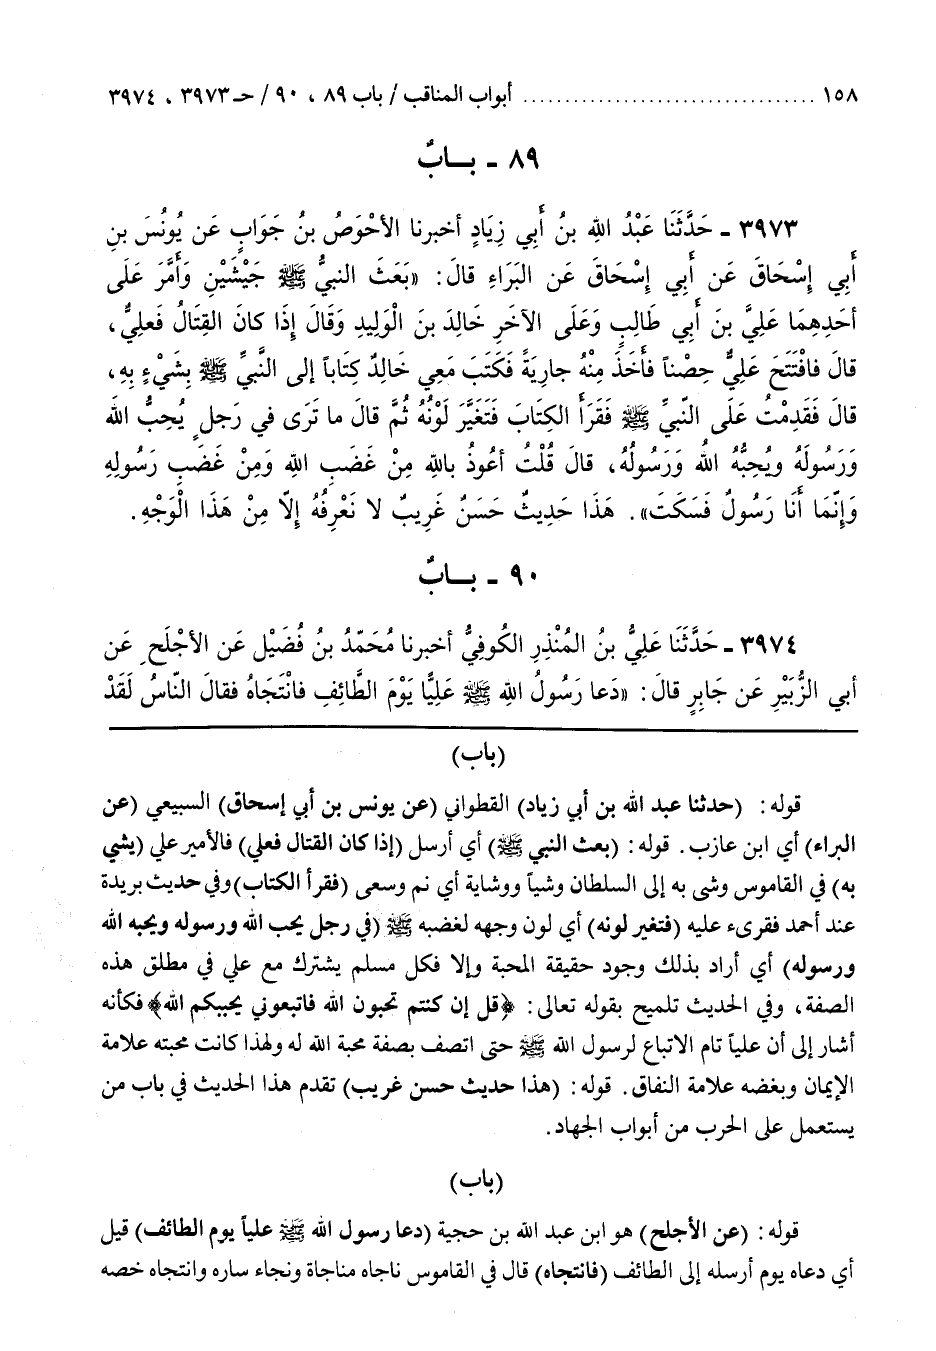 ١٥٨ .................................... أبواب المناقب / باب ٨٩ ، ٩٠ / حـ ٣٩٧٣ ، ٣٩٧٤
٨٩ ـ بـــابٌ
٣٩٧٣ ـ حَدَّثَنَا عَبْدُ اللهِ بنُ أَبي زِيَادٍ أخبرنا الأحْوَصُ بنُ جَوَابٍ عَن يُونُسَ بنِ
أَبي إِسْحَاقَ عَن أَبي إِسْحَاقَ عَن البَرَاءِ قالَ: «بَعَثَ النبيُّ ﷺ جَيْشَيْنِ وَأَمَّرَ عَلَى
أحَدِهِمَا عَلِيَّ بنَ أبي طَالِبٍ وَعَلَى الآخَرِ خَالِدَ بنَ الْوَلِيدِ وَقَالَ إِذَا كانَ القِتَالُ فَعلِيٌّ،
قالَ فافْتَتَحَ عَلِيٌّ حِصْناً فأخَذَ مِنْهُ جارِيَةً فَكَتَبَ مَعِي خَالِدٌ كِتَاباً إلى النَّبيِّ ﷺ بِشَيْءٍ بِهِ،
قالَ فَقَدِمْتُ عَلَى النّبيِّ ﷺ فَقَرَأَ الكِتَابَ فَتَغَيَّرَ لَوْنُهُ ثُمَّ قالَ ما تَرَى في رَجلٍ يُحِبُّ اللهَ
وَرَسُولَهُ ويُحِبُّهُ اللهُ وَرَسُولُهُ، قالَ قُلْتُ أعُوذُ باللهِ مِنْ غَضَبِ اللهِ وَمِنْ غَضَبِ رَسُولِهِ
وَإنّمَا أنَا رَسُولٌ فَسَكَتَ». هَذَا حَدِيثٌ حَسَنٌ غَرِيبٌ لا نَعْرِفُهُ إلاّ مِنْ هَذَا الْوَجْهِ.
٩٠ ـ بـــابٌ
٣٩٧٤ ـ حَدَّثَنَا عَلِيُّ بنُ المُنْذِرِ الكُوفِيُّ أخبرنا مُحَمّدُ بنُ فُضَيْلٍ عَن الأجْلَحِ عَن
أبي الزُّبَيْرِ عَن جَابِرٍ قالَ: «دَعا رَسُولُ اللهِ ﷺ عَلِيًّا يَوْمَ الطَّائِفِ فانْتَجَاهُ فقالَ النّاسُ لَقَدْ
(باب)
قوله: (حدثنا عبد الله بن أبي زياد) القطواني (عن يونس بن أبي إسحاق) السبيعي (عن
البراء) أي ابن عازب. قوله: (بعث النبي ﷺ) أي أرسل (إذا كان القتال فعلي) فالأمير علي (يشي
به) في القاموس وشى به إلى السلطان وشياً ووشاية أي نم وسعى (فقرأ الكتاب) وفي حديث بريدة
عند أحمد فقرىء عليه (فتغير لونه) أي لون وجهه لغضبه ﷺ (في رجل يحب الله ورسوله ويحبه الله
ورسوله) أي أراد بذلك وجود حقيقة المحبة وإلا فكل مسلم يشترك مع علي في مطلق هذه
الصفة، وفي الحديث تلميح بقوله تعالى: ﴿قل إن كنتم تحبون الله فاتبعوني يحببكم الله﴾ فكأنه
أشار إلى أن علياً تام الاتباع لرسول الله ﷺ حتى اتصف بصفة محبة الله له ولهذا كانت محبته علامة
الإيمان وبغضه علامة النفاق. قوله: (هذا حديث حسن غريب) تقدم هذا الحديث في باب من
يستعمل على الحرب من أبواب الجهاد.
(باب)
قوله: (عن الأجلح) هو ابن عبد الله بن حجية (دعا رسول الله ﷺ علياً يوم الطائف) قيل
أي دعاه يوم أرسله إلى الطائف (فانتجاه) قال في القاموس ناجاه مناجاة ونجاء ساره وانتجاه خصه